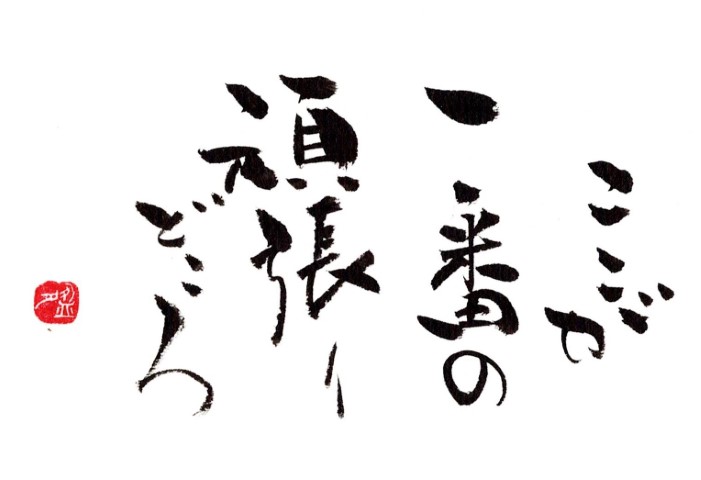 ここが
一番の
頑張り
どころ